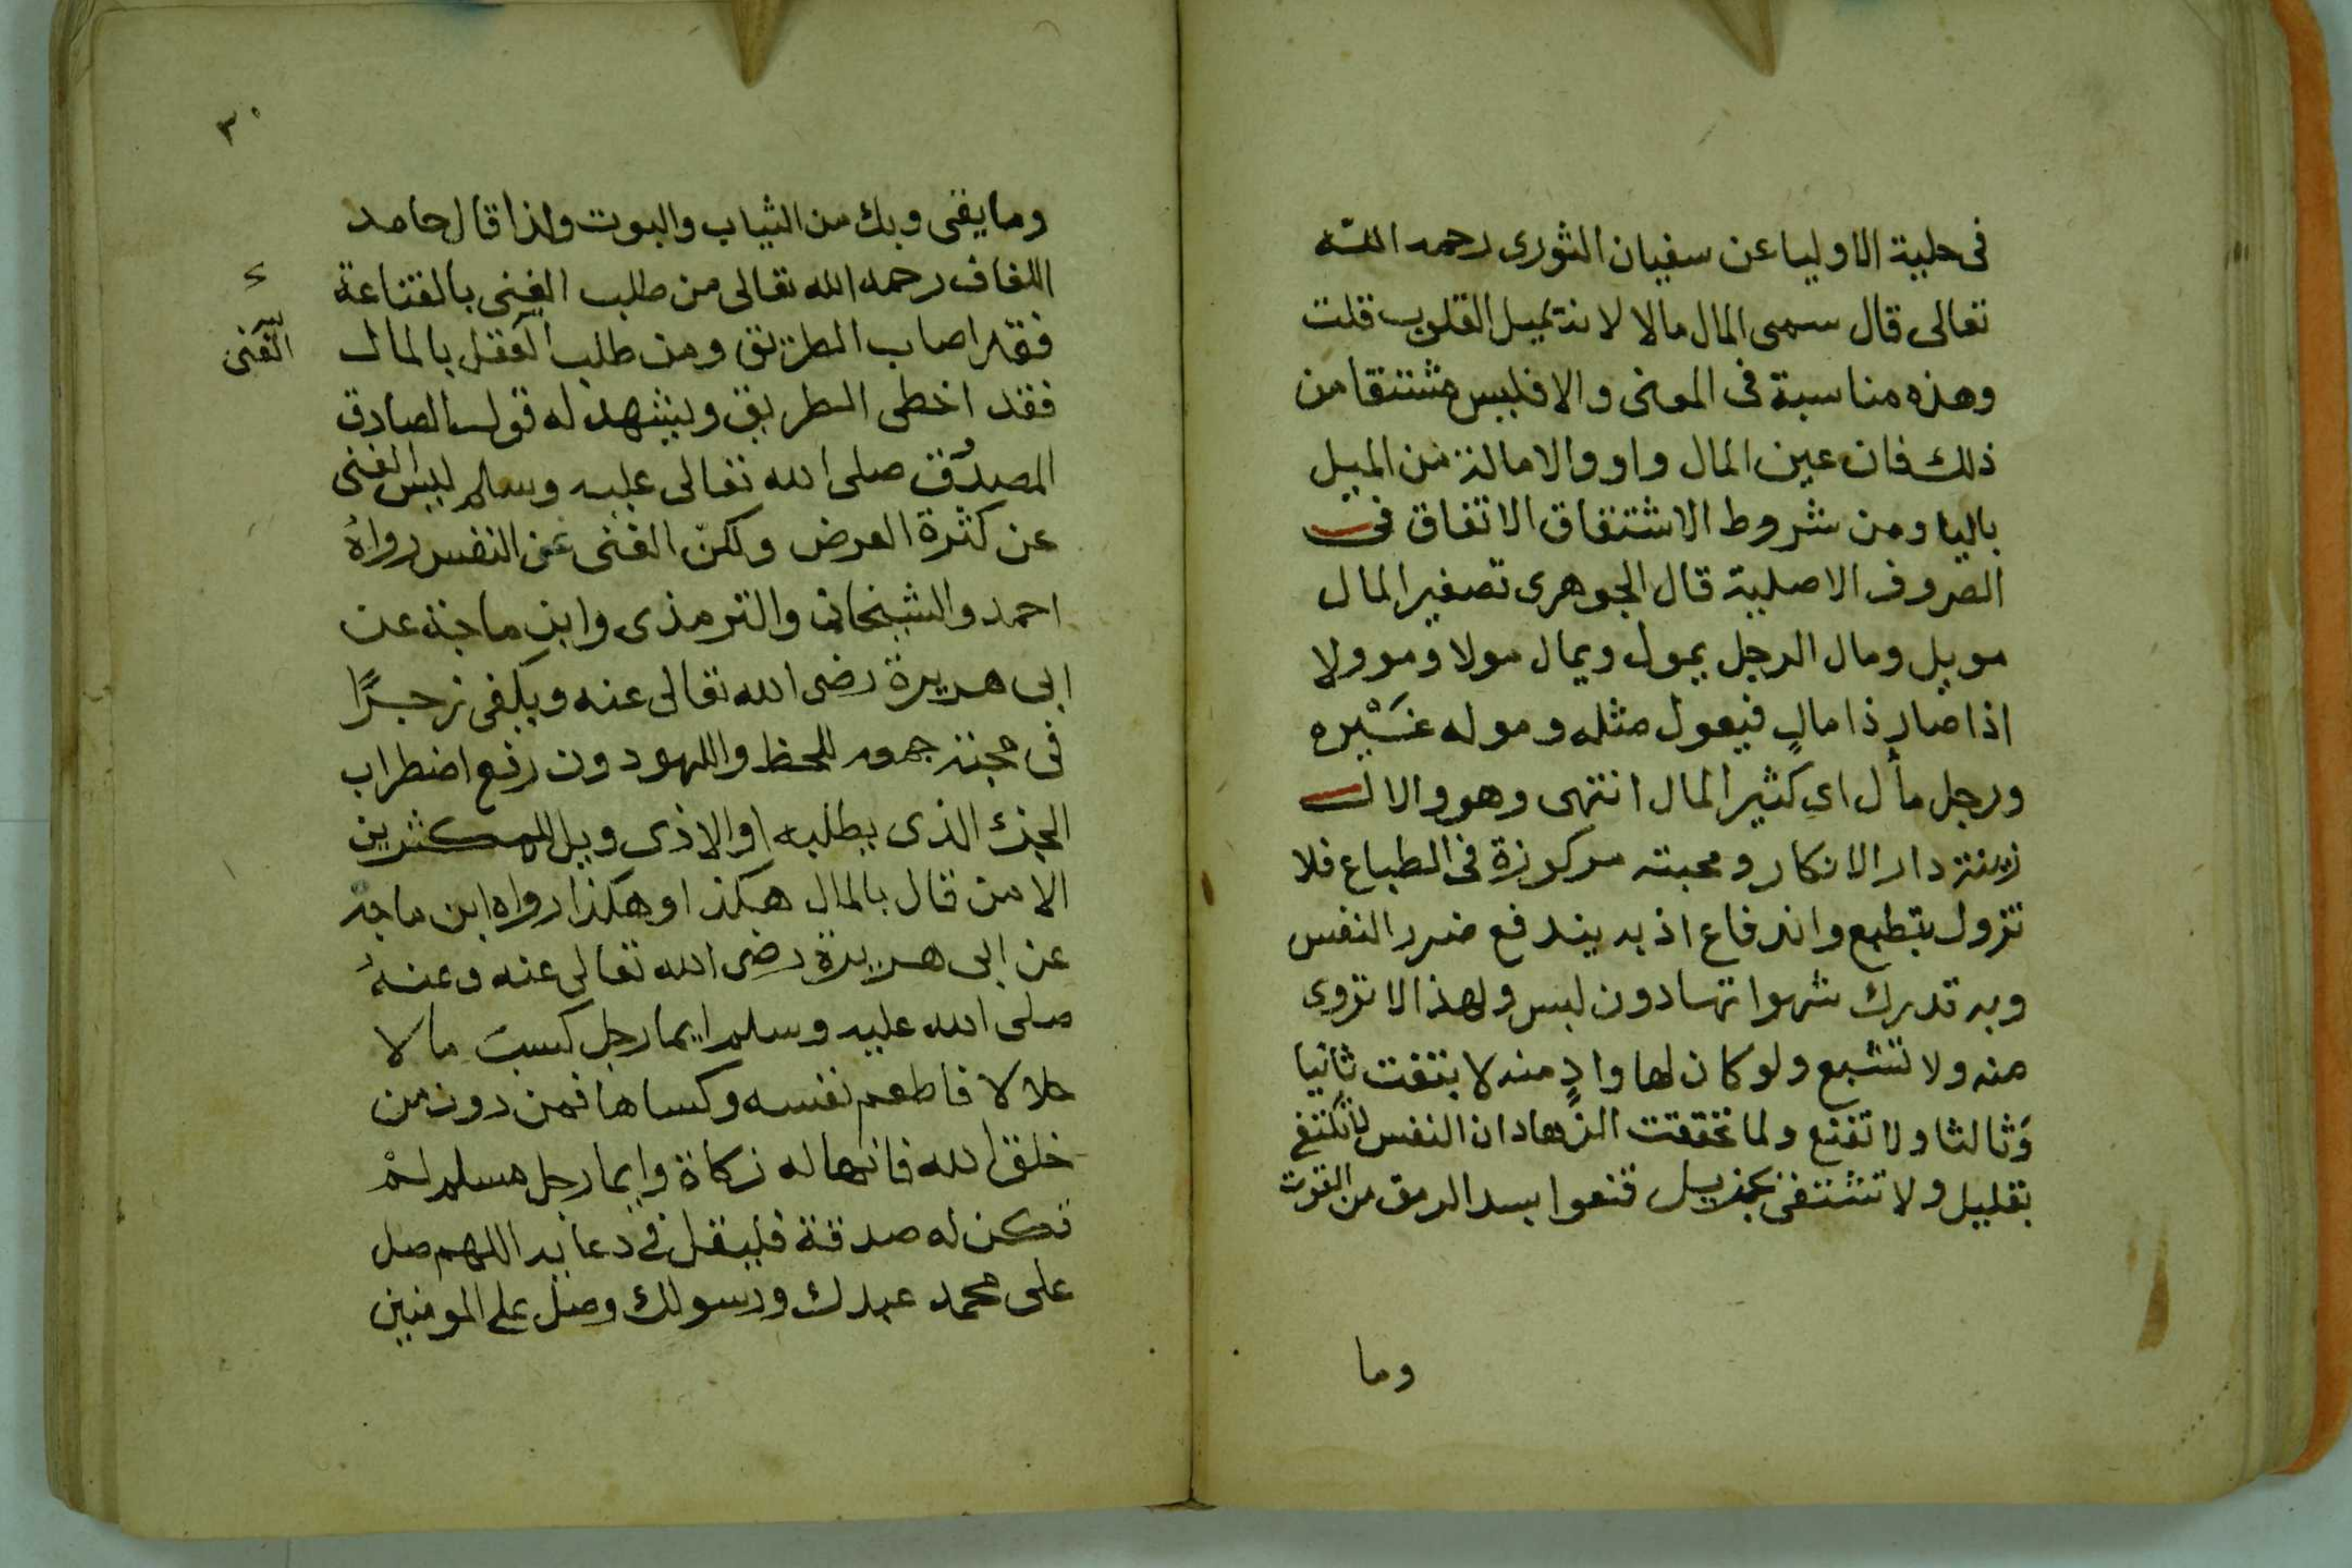 فى حلية الاوليا عن سفيان الثورى رحمه الله
تعالى قال سمى المال مالا لانه يميل القلوب قلت
وهذه مناسبة فى المعنى والا فليس مشتقا من
ذلك فان عين المال واو والامالة من الميل
باليا ومن شروط الاشتقاق الاتفاق فى
الحروف الاصلية قال الجوهرى تصغير المال
مويل ومال الرجل يمول ويمال مولا وموولا
اذا صار ذا مالٍ فيعول مثله وموله غَيْره
ورجل مأل اى كثير المال انتهى وهو والا
زينة دار الانكار ومحبته مركوزة فى الطباع فلا
تزول بتطبع واندفاع اذ به يندفع ضرر النفس
وبه تدرك شهواتها دون لبس ولهذا لا تروى
منه ولا تشبع ولو كان لها وادٍ منه لا بتغت ثانيا
وَثالثا ولا تقنع ولما تحققت الزهاد ان النفس لا تكتفى
بقليل ولا تشتفى بجزيل قنعوا بسد الرمق من القوت
وما
٣٠
وما يقى وبك من الثياب والبوت ولذا قال حامد
اللفاف رحمه الله تعالى من طلب الغنى بالقناعة
فقد اصاب الطريق ومن طلب الفقر بالمال
الغنى
فقد اخطى الطريق ويشهد له قول الصادق
المصدُق صلى الله تعالى عليه وسلم ليس الغنى
عن كثرة العرض ولكنّ الغنى عن النفس رواهُ
احمد والشيخان والترمذى وابن ماجة عن
ابى هريرة رضى الله تعالى عنه ويكفى زجرًا
فى محبة جمعه للحظ واللهو دون رفع اضطراب
الجزء الذى يطلبه او الاذى ويل للمكثرين
الا من قال بالمال هكذا وهكذا رواه ابن ماجة
عن ابى هريرة رضى الله تعالى عنه وعنهُ
صلى الله عليه وسلم ايما رجل كسب مالا
حلالا فاطعم نفسه وكساها فمن دونه من
خلق الله فانها له زكاة وايما رجل مسلم لمْ
تكن له صدقة فليقل فى دعائه اللهم صل
على محمد عبدك ورسولك وصل على المومنين